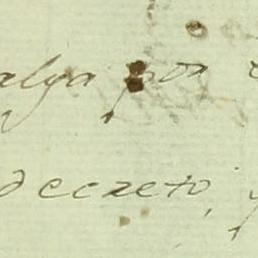 alga por
decreto, y